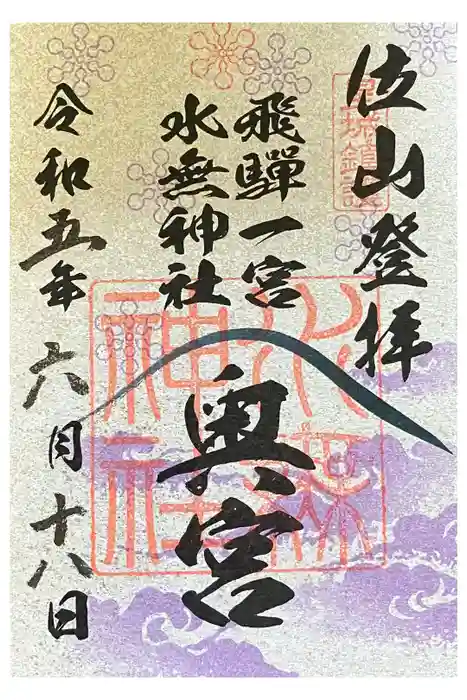 位山登拝
飛騨一宮
水無神社
奥宮
令和五年六月十八日
水無神社